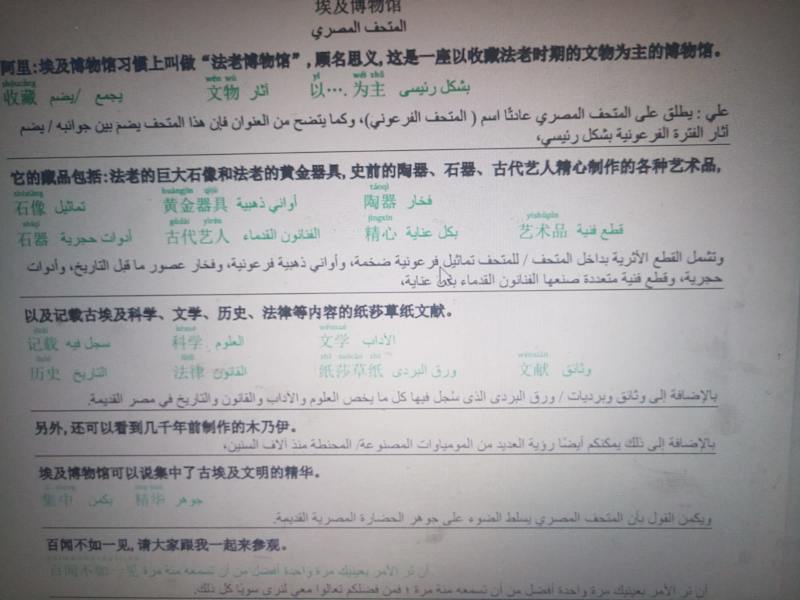 埃及博物馆
المتحف المصري
阿里:埃及博物馆习惯上叫做“法老博物馆”,顾名思义,这是一座以收藏法老时期的文物为主的博物馆。
shōucáng wén wù yǐ wéi zhǔ
收藏 يجمع /يضم 文物 آثار 以…. 为主 بشكل رئيسى
علي : يطلق على المتحف المصري عادتًا اسم ( المتحف الفرعوني)، وكما يتضح من العنوان فإن هذا المتحف يضم بين جوانبه / يضم
آثار الفترة الفرعونية بشكل رئيسي،
它的藏品包括:法老的巨大石像和法老的黄金器具,史前的陶器、石器、古代艺人精心制作的各种艺术品,
shíxiàng huángjīn qìjù táoqì
石像 تماثيل 黄金器具 أواني ذهبية 陶器 فخار
shíqì gǔdài yìrén jīngxīn yìshùpǐn
石器 أدوات حجرية 古代艺人 الفنانون القدماء 精心 بكل عناية 艺术品 قطع فنية
وتشمل القطع الأثرية بداخل المتحف / للمتحف تماثيل فرعونية ضخمة، وأواني ذهبية فرعونية، وفخار عصور ما قبل التاريخ، وأدوات
حجرية، وقطع فنية متعددة صنعها الفنانون القدماء بكل عناية،
以及记载古埃及科学、文学、历史、法律等内容的纸莎草纸文献。
jìzǎi kēxué wénxué
记载 سجل فيه 科学 العلوم 文学 الآداب
lìshǐ fǎlǜ zhǐ suōcǎo zhǐ wénxiàn
历史 التاريخ 法律 القانون 纸莎草纸 ورق البردى 文献 وثائق
بالإضافة إلى وثائق وبرديات / ورق البردى الذى سُجل فيها كل ما يخص العلوم والآداب والقانون والتاريخ في مصر القديمة.
另外,还可以看到几千年前制作的木乃伊。
بالإضافة إلى ذلك يمكنكم أيضًا رؤية العديد من المومياوات المصنوعة/ المحنطة منذ آلاف السنين،
埃及博物馆可以说集中了古埃及文明的精华。
集中 يكمن 精华 جوهر
ويكمن القول بأن المتحف المصري يسلط الضوء على جوهر الحضارة المصرية القديمة.
百闻不如一见,请大家跟我一起来参观。
百闻不如一见 أن تر الأمر بعينيك مرة واحدة أفضل من أن تسمعه مئة مرة
أن تر الأمر بعينيك مرة واحدة أفضل من أن تسمعه مئة مرة ؛ فمن فضلكم تعالوا معي لنرى سويًا كل ذلك.